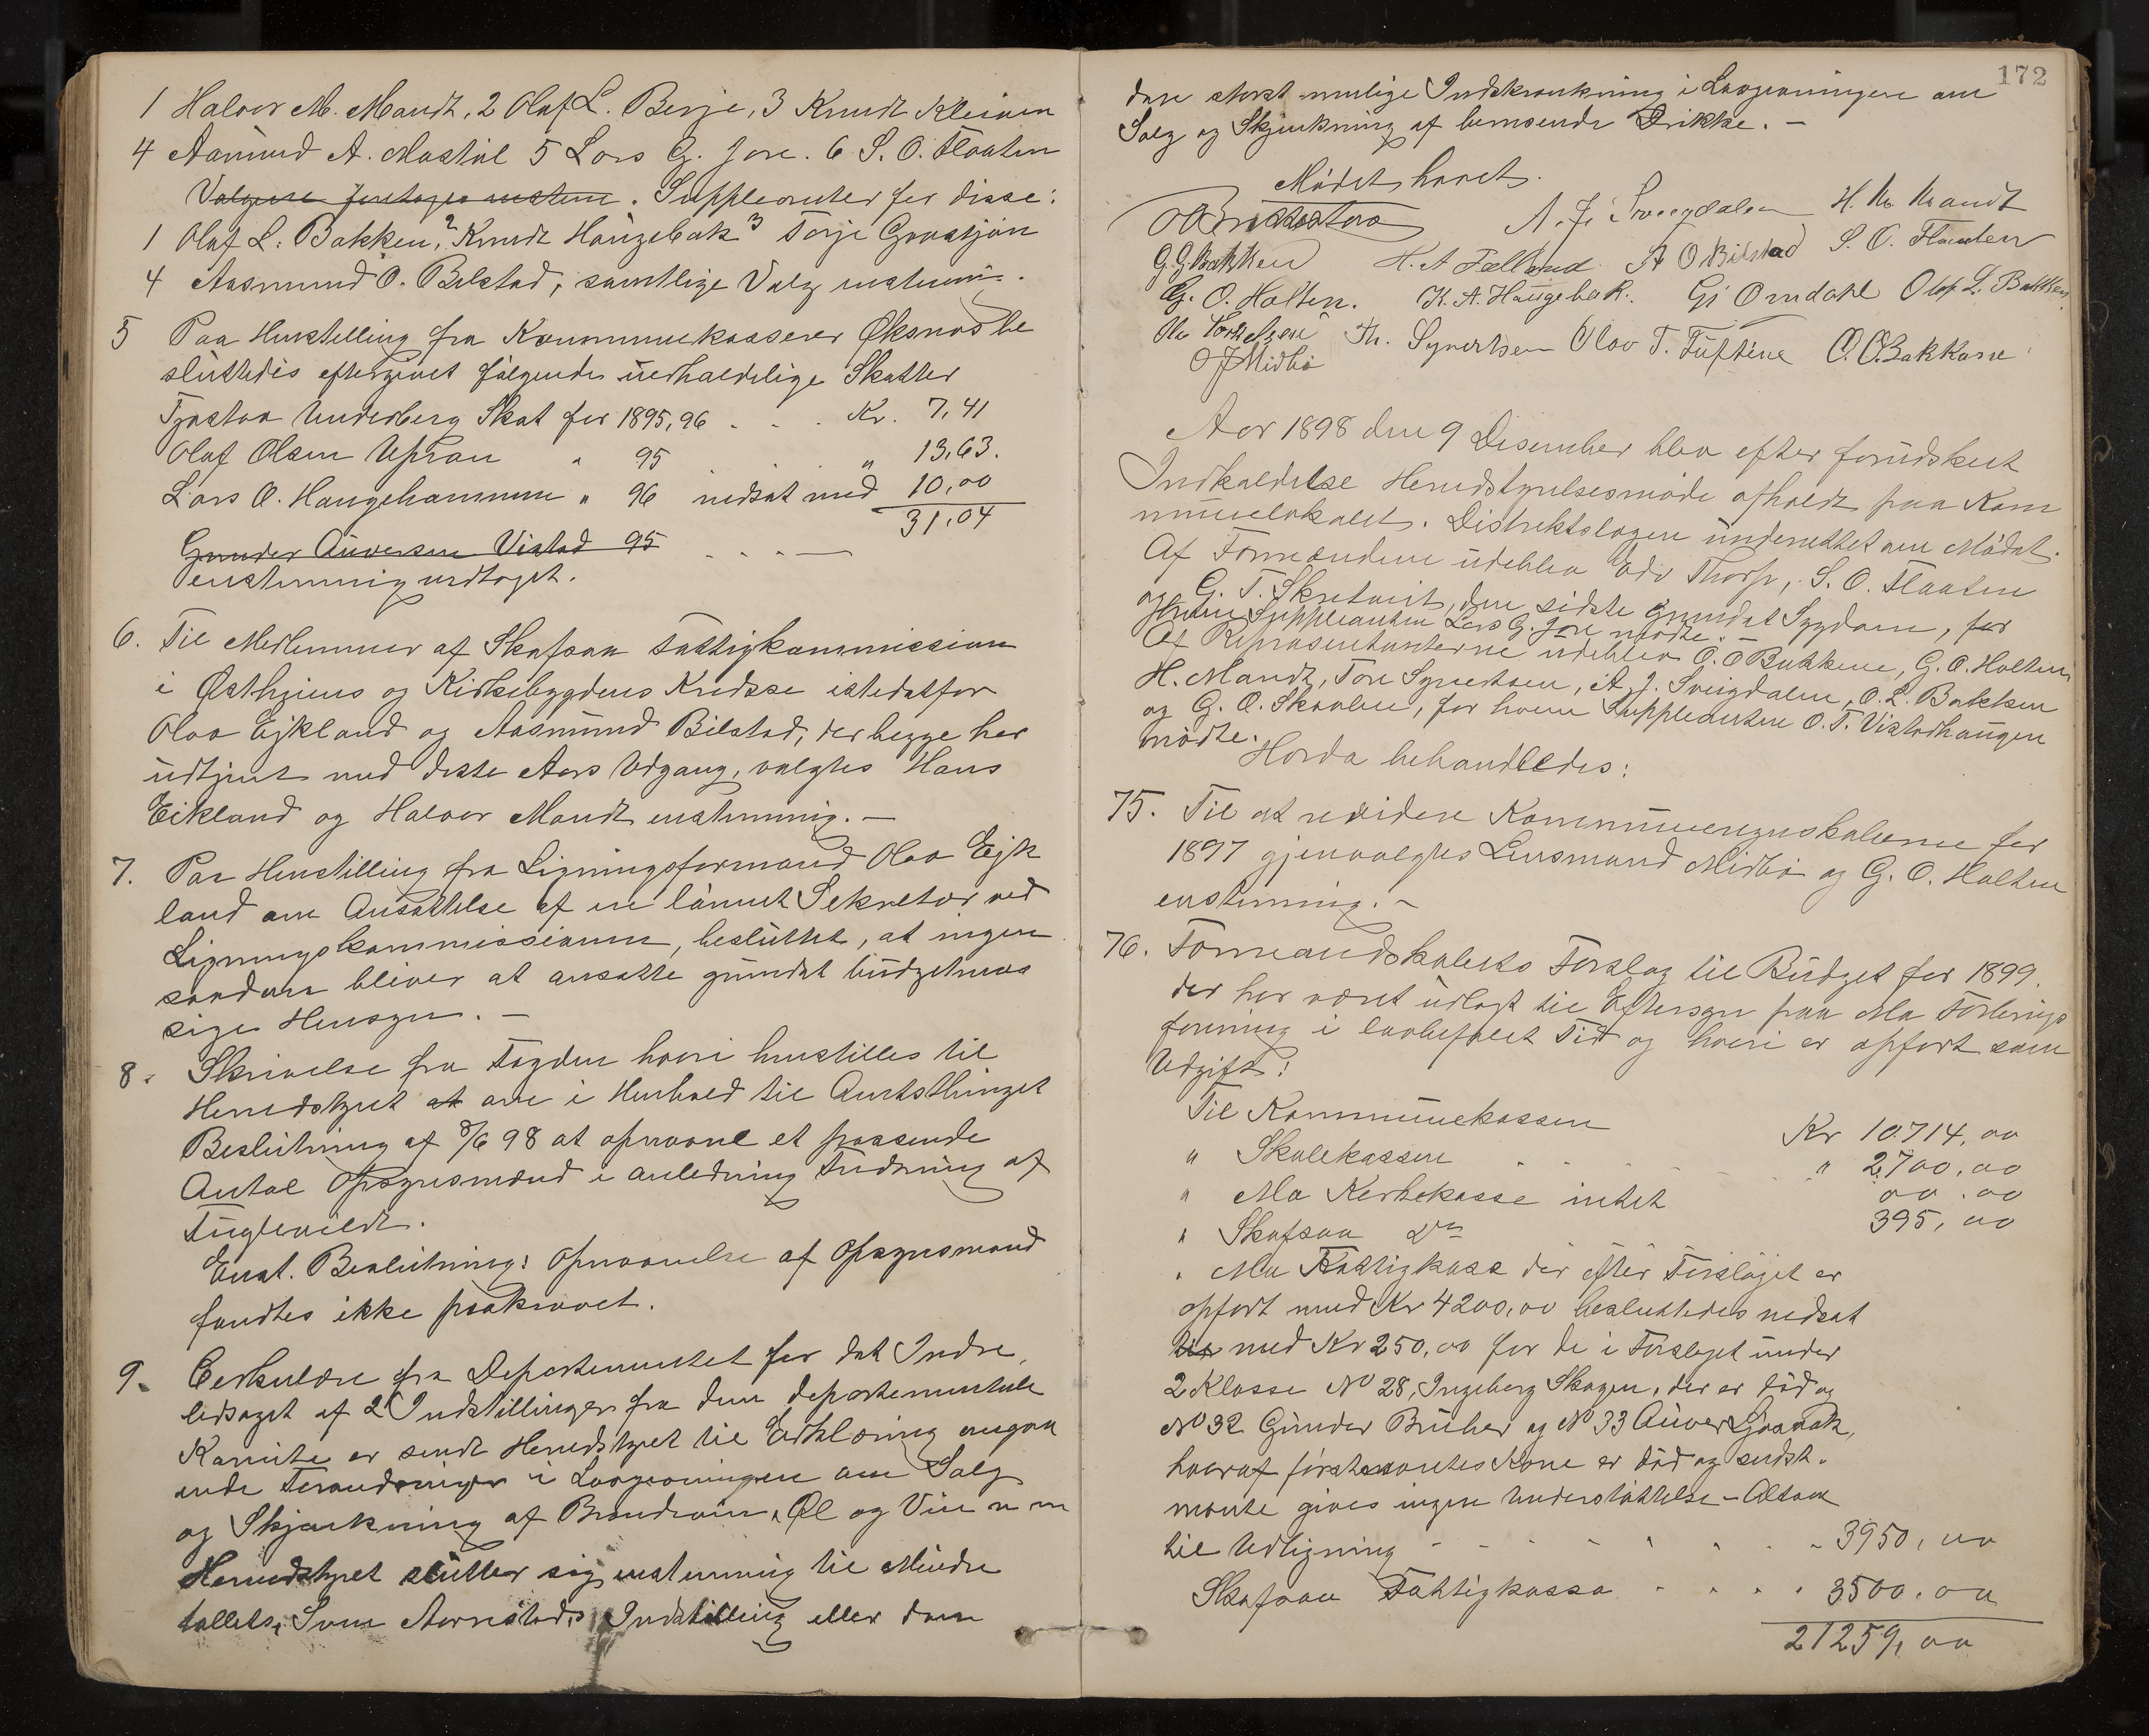 1 Halvor M. Mandt, 2 Olaf L. Berje, 3 Knudt Kleiven
4 Aamund A. Mastøl 5 Lars G. Jore. 6 S. O. Flaaten
Valgene foretoges enstem. Suppleanter for disse:
1 Olaf L. Bakken, 2 Knudt Haugebak 3 Torje Graasjøn
4 Aasmund O. Bilstad, samtlige Valg enstemmi.
5 Paa Henstilling fra Kommunekasserer Øksnæs be
sluttedes eftergivet følgende uerholdelige Skatter
Tjøstov Underberg Skat for 1895,96 . . . Kr. 7,41
Olaf Olsen Uphran " 95 . . . " 13,63.
Lars O. Haugehammen " 96 nedsat med 10,00
31,04
Gunder Auversen Vistad 95 . . .
enstemmig vedtaget.
6. Til Medlemmer af Skafsaa Fattigkommission
i Østhjems og Kirkebygdens Kredse istedetfor
Olav Ejkland og Aasmund Bilstad, der begge har
udtjent med dette Aars Udgang, valgtes Hans
Eikland og Halvor Mandt enstemmig. -
7. Paa Henstilling fra Ligningsformand Olav Ejk
land om Ansættelse af en lønnet Sekretær ved
Ligningskommissionen, besluttet, at ingen
saadan bliver at ansætte grundet budgetmæs
sige Hensyn. -
8. Skrivelse fra Fogden hvori henstilles til
Herredstyret at om i Henhold til Amtsthinget
Beslutning af 8/6 98 at opnævne et passende
Antal Opsynsmænd i anledning Fredning af
Fuglevildt.
Enst. Beslutning: Opnævnelse af Opsynsmænd
fandtes ikke paakrævet.
9. Cerkulære fra Departementet for det Indre,
ledsaget af 2 Indstillinger fra den departementale
Komite er sendt Herredstyret til Erklæring angaa
ende Forandringer i Lovgivningen om Salg
og Skjænkning af Brændevin, Øl og Vin m m
Herredstyret slutter sig enstemmig til Mindre
tallets, Sven Aarrestads Indstilling eller den
172
den størst mulige Indskrænkning i Lovgivningen om
Salg og Skjænkning af berusende Drikke. -
Mødet hævet.
A. J. Sveigdalen H. M. Mandt
G. G. Bakken H. A Fælland A O Bilstad S. O. Flaaten
G. O. Holten. K. A. Haugebak. Gi Omdahl Olaf L. Bakken
Th. Syvertsen Olav T. Tuftene O. O. Bakkane
O J Midbø
Aar 1898 den 9 Desember blev efter forudskeet
Indkaldelse Herredstyrelsesmøde afholdt paa Kom
munelokalet. Distriktslægen underrettet om Mødet.
Af Formændene udeblev Edv Thorp, S. O. Flaaten
og G. T. Skretveit, den sidste grundet Sygdom, for
hvem Suppleanten Lars G. Jore mødte. -
Af Repræsentanterne udeblev O. O Bakkene, G. O. Holten,
H. Mandt, Tore Syvertsen, A. J. Sveigdalen, O. L. Bakken
og G. O. Skaalen, for hvem Suppleanten O. T. Vistadhaugen
mødte.
Horda behandledes:
75. Til at revidere Kommuneregnskaberne for
1897 gjenvalgtes Lensmand Midbø og G. O. Holten
enstemmig. -
76. Formandskabets Forslag til Budget for 1899.
der har været udlagt til Eftersyn paa Mo Forbrugs
forening i lovbefalet Tid og hvori er opført som
Udgift:
Til Kommunekassen Kr 10714,00
" Skolekassen . . . " 2700,00
" Mo Kirkekasse intet 00.00
" Skafsaa Do 395,00
" Mo Fattigkasse der efter Forslaget er
opført med Kr 4200,00 besluttedes nedsat
til med Kr 250,00 for de i Forslaget under
2 Klasse No 28, Ingeborg Skogen, der er død og
No 32 Gunder Bruhei og No 33 Auver Graavak,
hvoraf førstnævntes Kone er død og sidst-
nævnte gives ingen Understøttelse - Altsaa
til Udligning - - - 3950,00
Skafsaa Fattigkasse . . . 3500.00
21259,00